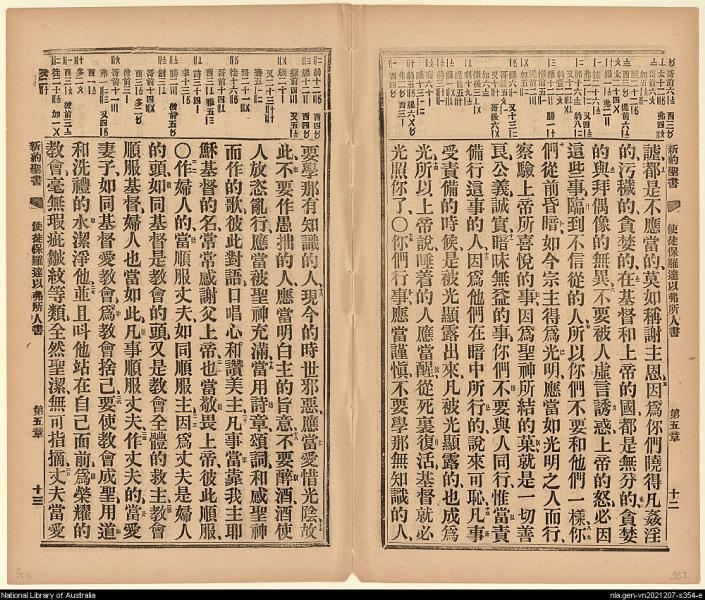 新約聖書
使徒保羅達以弗所人書
第五章
十二
謔都是不應當的莫如稱謝主恩因爲你們曉得凡姦淫
的汚穢的貪婪的在基督和上帝的國都是無分的貪婪
的與拜偶像的無異不要被人虛言誘惑上帝的怒必因
這些事臨到不信從的人所以你們不要和他們一樣你
們從前昏暗如今宗主得爲光明應當如光明之人而行
察驗上帝所喜悅的事因爲聖神所結的菓就是一切善
良公義誠實暗昧無益的事你們不要與人同行惟當責
備行這事的人因爲他們在暗中所行的說來可恥凡事
受責備的時候是被光顯露出來凡被光顯露的也成爲
光所以上帝說睡着的人應當醒從死裏復活基督就必
光照你了〇你們行事應當謹慎不要學那無知識的人
要學那有知識的人現今的時世邪惡應當愛惜光陰故
此不要作愚拙的人應當明白主的旨意不要醉酒酒使
人放恣亂行應當被聖神充滿當用詩章頌詞和感聖神
而作的歌彼此對語口唱心和讚美主凡事當靠我主耶
穌基督的名常常感謝父上帝也當敬畏上帝彼此順服
〇作婦人的當順服丈夫如同順服主因爲丈夫是婦人
的頭如同基督是教會的頭又是教會全體的救主教會
順服基督婦人也當如此凡事順服丈夫作丈夫的當愛
妻子如同基督愛教會爲教會捨己要使教會成聖用道
和洗禮的水潔淨他並且叫他站在自己面前爲榮耀的
教會毫無瑕疵皺紋等類全然聖潔無可指摘丈夫當愛
新約聖書
使徒保羅達以弗所人書
第五章
十三
352
352
National Library of Australia
nla.gen-vn2021207-s354-e